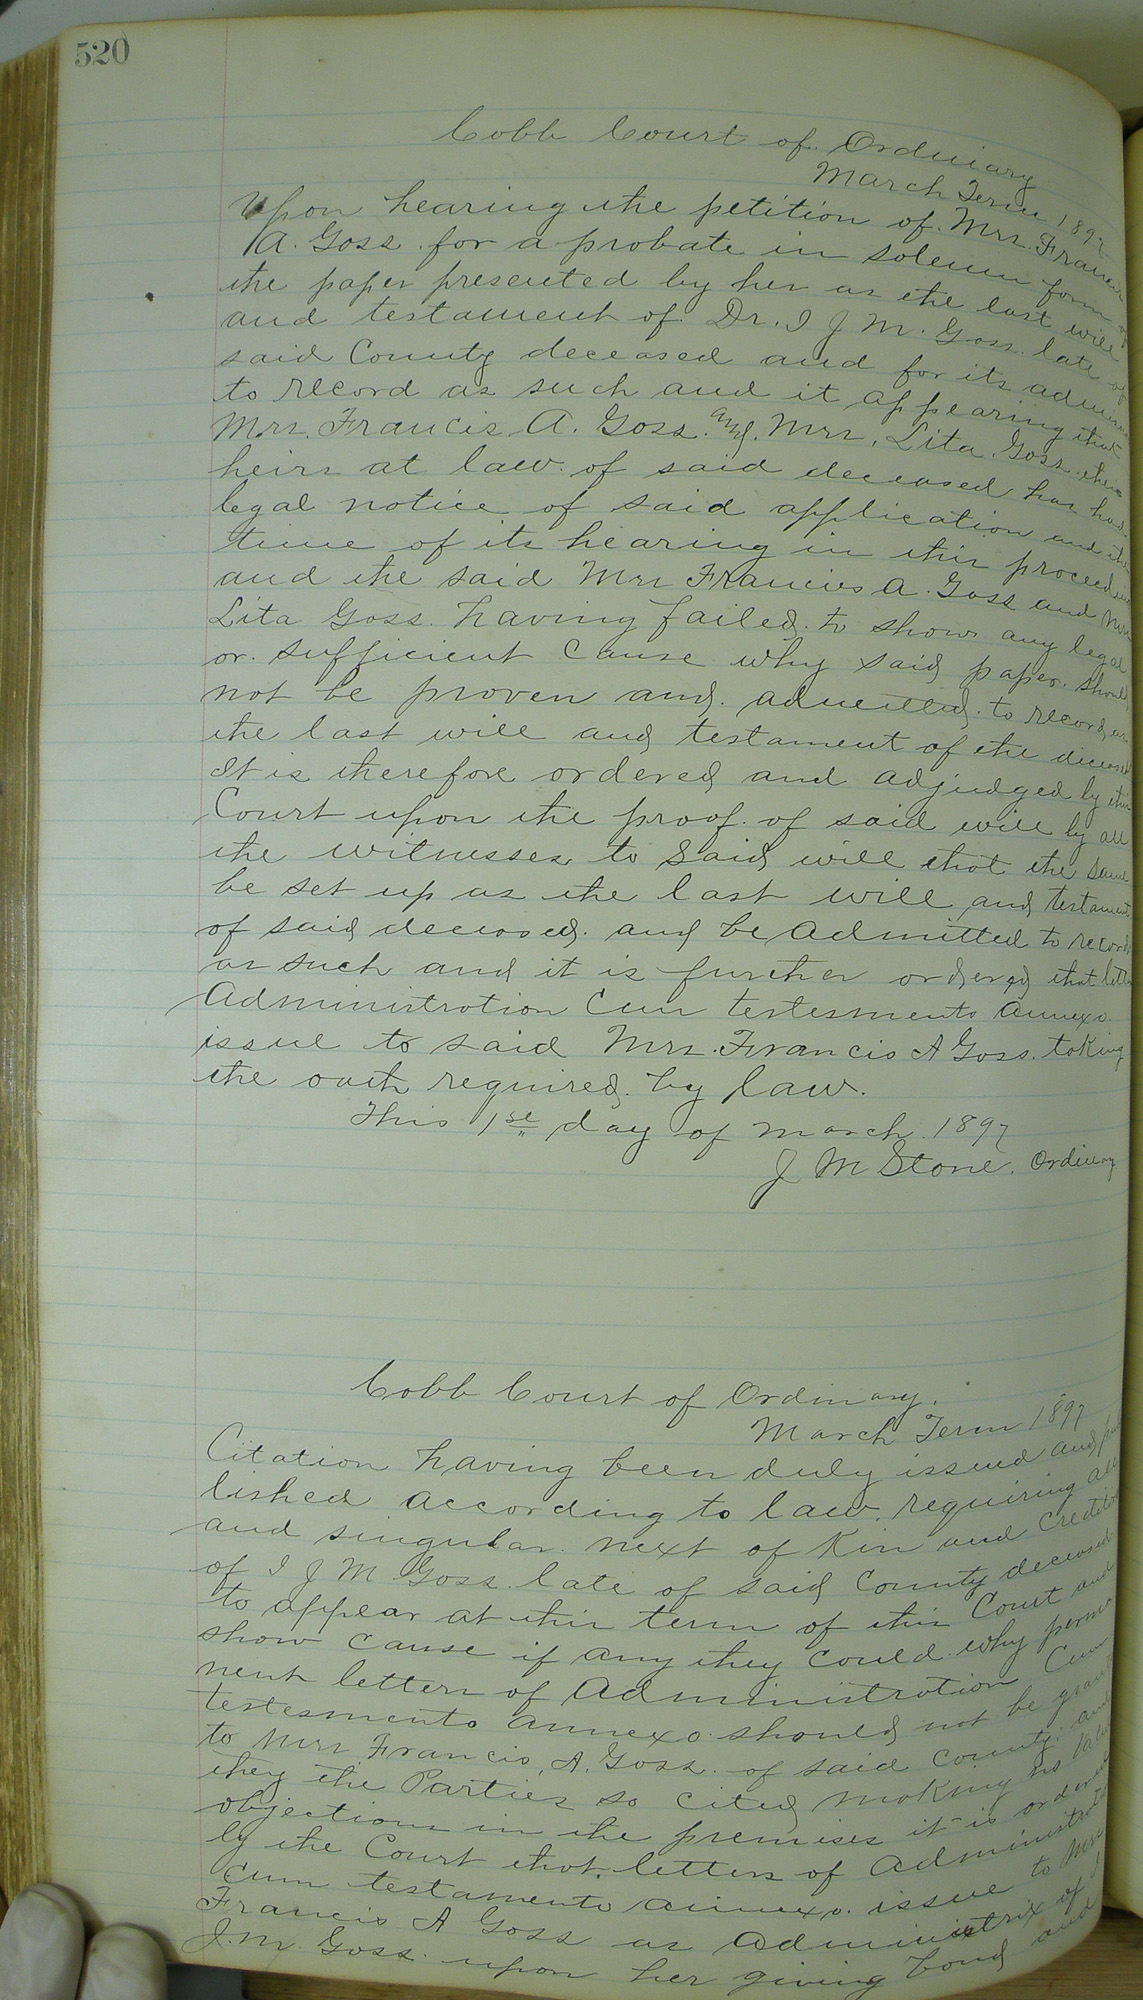 520
Cobb Court of Ordinary
March Term 1897
Upon hearing the petition of Mrs. Francis
A. Goss for a probate in solemn form of
the paper presented by her as the last will
and testament of Dr. I J M. Goss late of
said County deceased and for its
to record as such and it appearing that
Mrs. Francis A. Goss and Mrs. Lita Goss
heirs at law of said deceased has had
legal notice of said application and the
time of its hearing in this
and the said Mrs Francies A. Goss and Mrs
Lita Goss having failed to show any legal
or sufficient cause why said paper should
not be proven and admitted to record as
the last will and testament of the deceased
It is therefore ordered and adjudged by this
Court upon the proof of said will by all
the witnesses to said will that the same
be set up as the last will and testament
of said deceased and be admitted to record
as such and it is further ordered that
Administration Cum testesmento annexo
issue to said Mrs. Francis A Goss taking
the oath required by law.
This 1st day of March 1897
J M Stone. Ordinary
Cobb Court of Ordinary.
March Term 1897
Citation having been duly issued and pub
lished according to law, requiring all
and singular next of Kin and Creditors
of I J M Goss late of said County deceased
to appear at this term of this Court and
show cause if any they could why perma
nent letters of Administration Cum
testesmento annexo should not be
to Mrs Francis A. Goss of said County and
they the Parties so cited making no
objection in the premises it is ordered
by the Court that letters of
cum testamento annexo issue to Mrs
Francis A Goss as Administrix of I
J. M. Goss upon her giving bond and